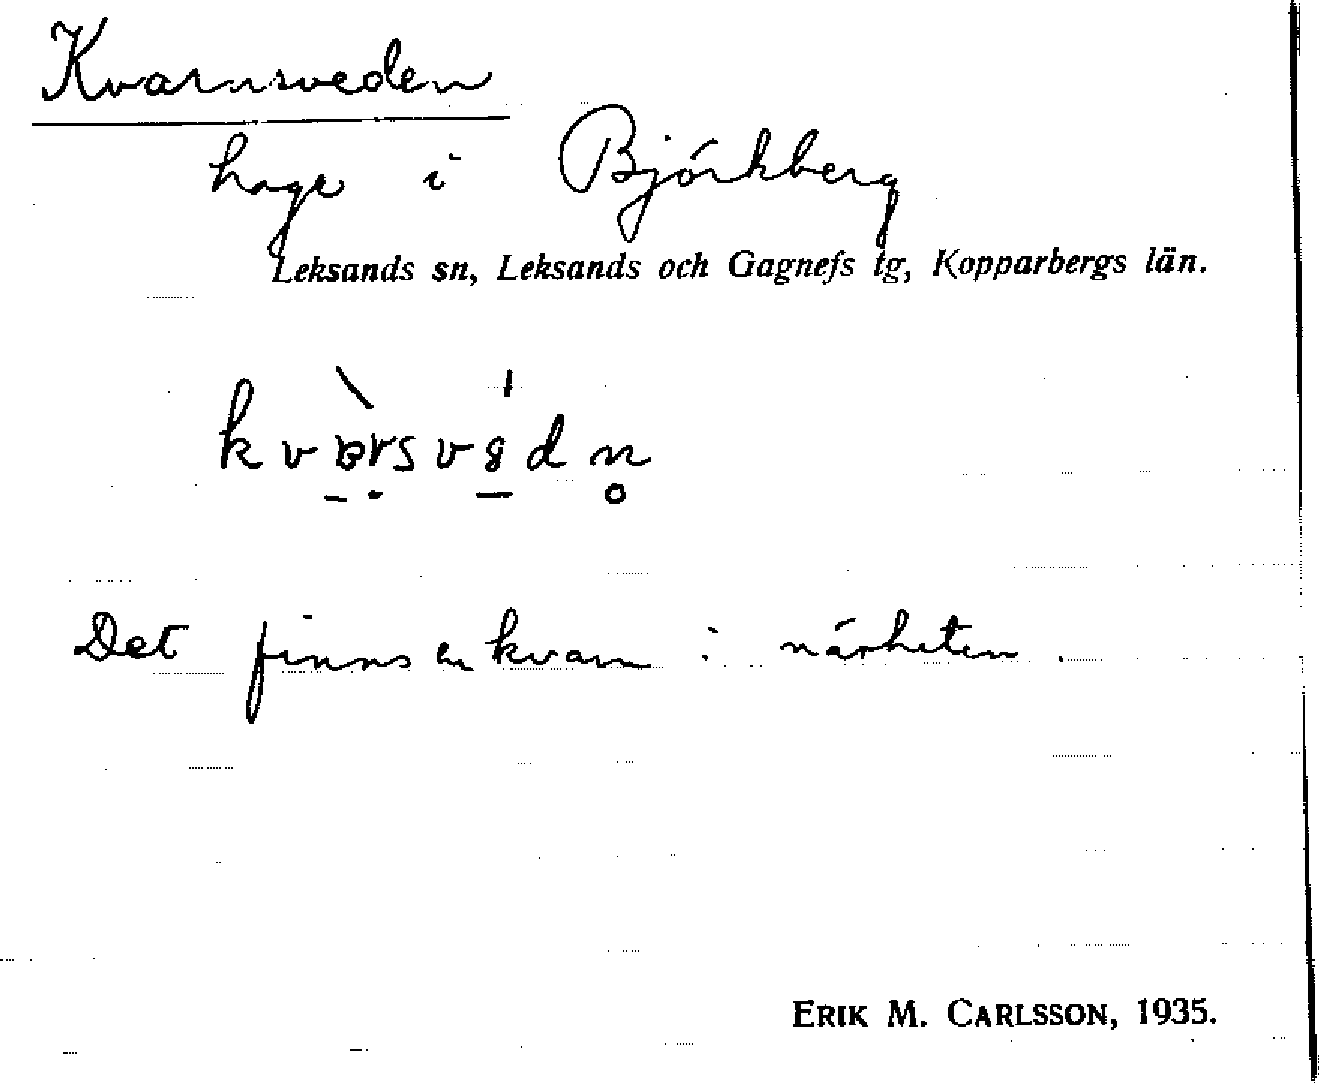 Kvarnsveden
hage i Björkberg
Leksands sn, Leksands och Gagnefs tg, Kopparbergs län.
Det finns en kvarn i närheten.
ERIK M. CARLSSON, 1935.